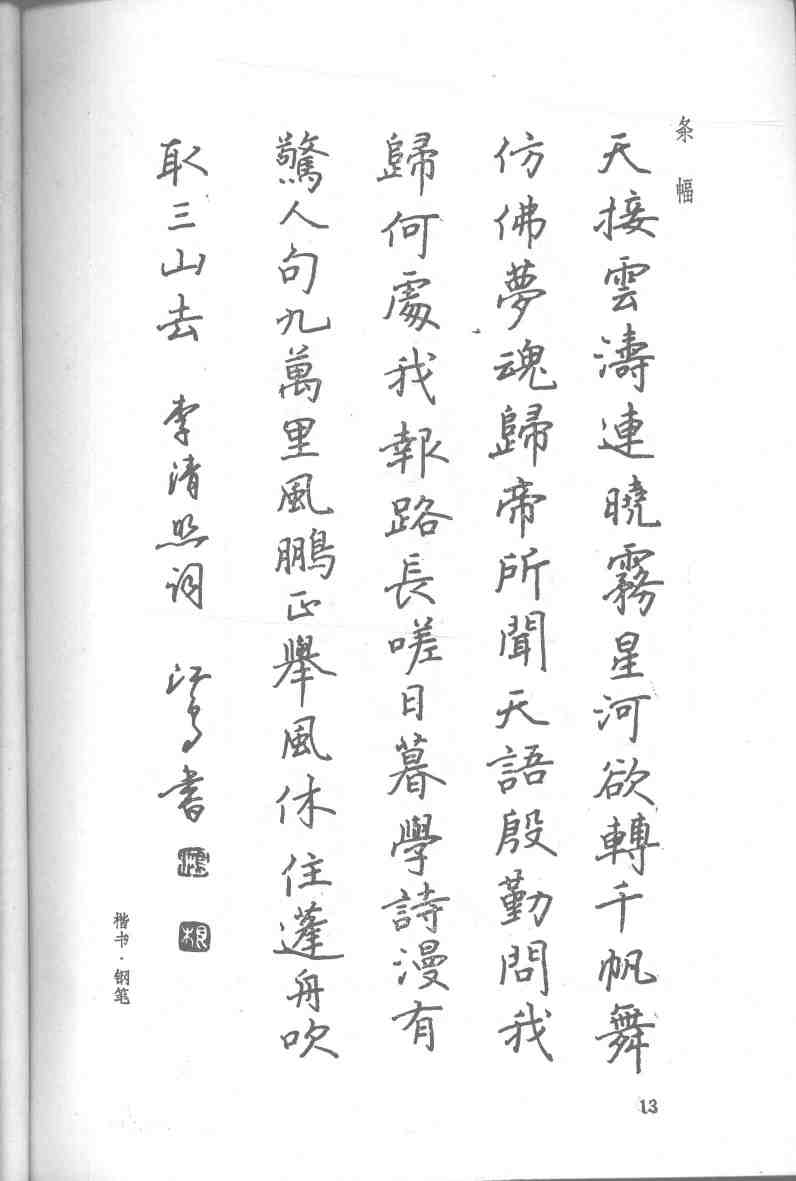 条幅
天接雲濤連曉霧星河欲轉千帆舞
仿佛夢魂歸帝所聞天語殷勤問我
歸何處我報路長嗟日暮學詩漫有
驚人句九萬里風鵬正舉風休住蓬舟吹
取三山去 李清照词 書
楷书·钢笔
13